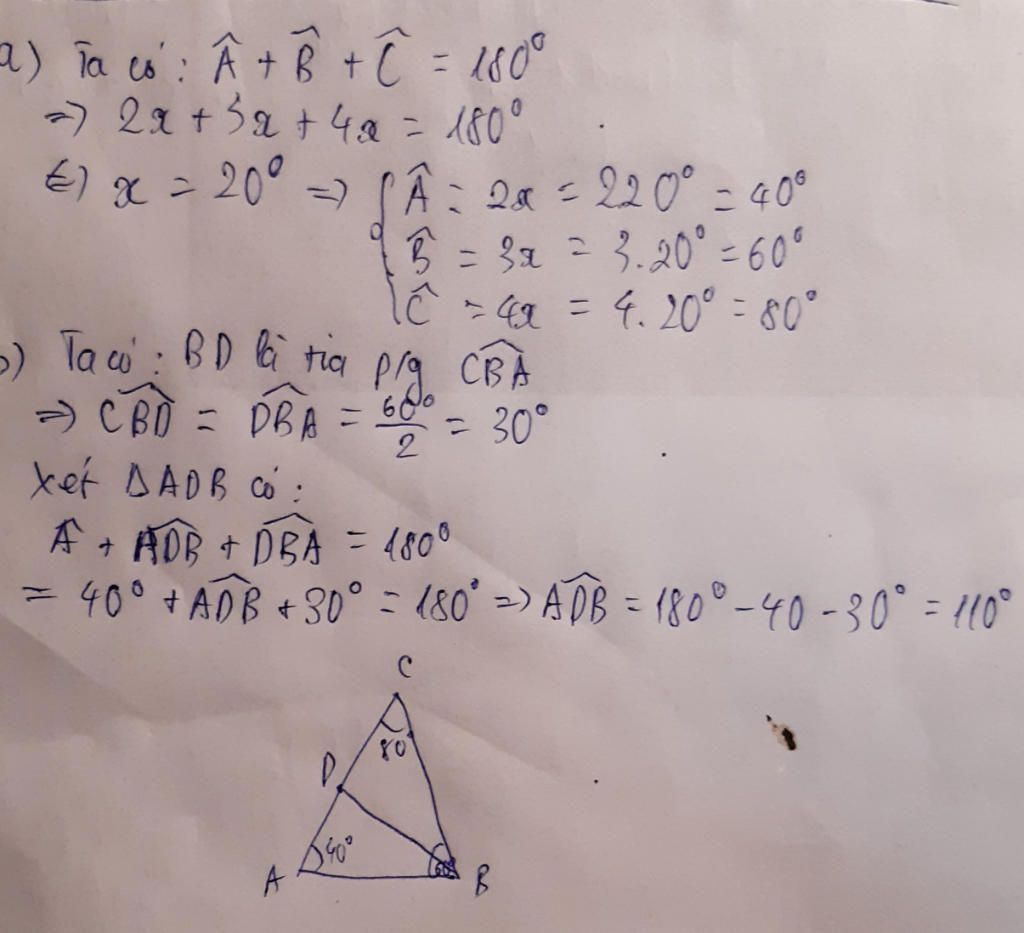 a) Ta có : Â + B̂ + Ĉ = 180°
=> 2x + 3x + 4x = 180°
<=> x = 20° => { Â = 2x = 220° = 40°
B̂ = 3x = 3.20° = 60°
Ĉ = 4x = 4.20° = 80°
b) Ta có : BD là tia p/g CBA^
=> CBD^ = DBA^ = 60°/2 = 30°
Xét ΔADB có :
Â + ADB^ + DBA^ = 180°
= 40° + ADB^ + 30° = 180° => ADB^ = 180° - 40 - 30° = 110°
C
80
D
40°
60°
A
B